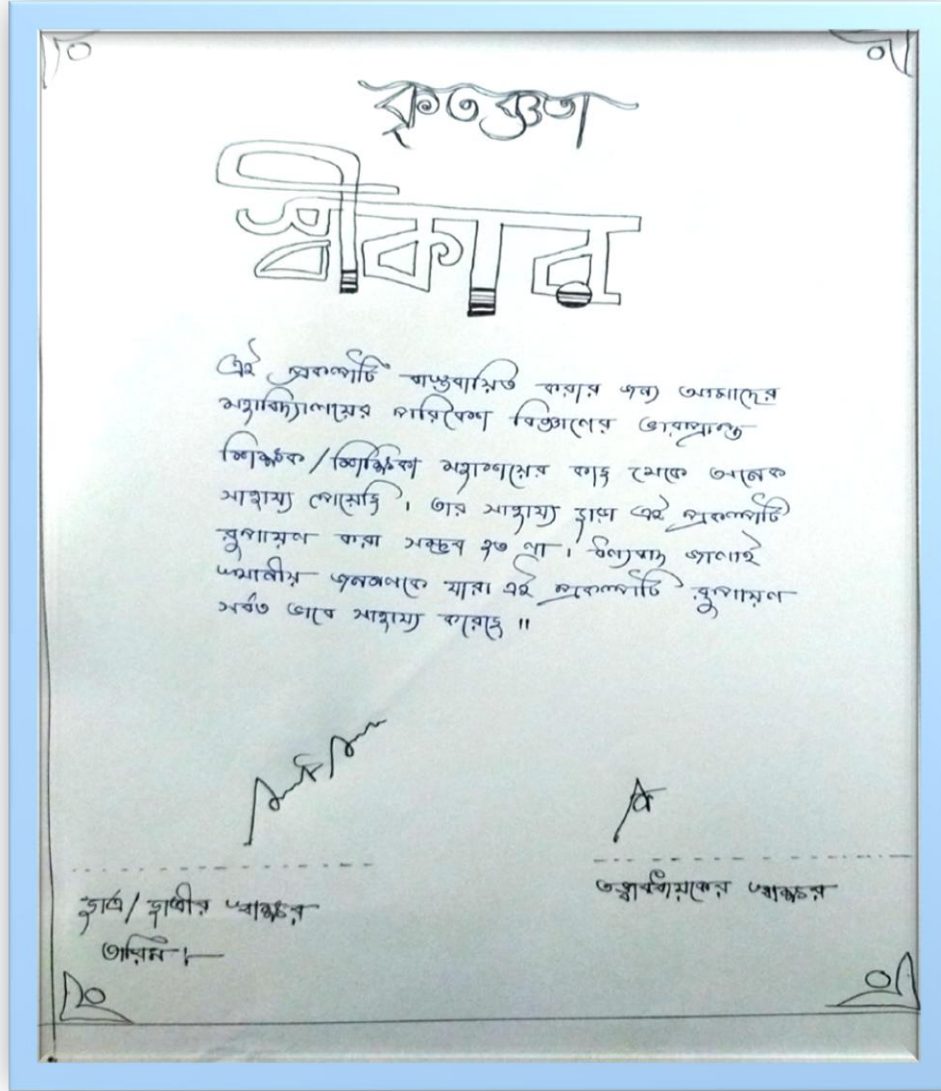 কৃতজ্ঞতা
স্বীকার
এই প্রকল্পটি বাস্তবায়িত করার জন্য আমাদের
মহাবিদ্যালয়ের পরিবেশ বিজ্ঞাণের ভারপ্রাপ্ত
শিক্ষক/শিক্ষিকা মহাশয়ের কাছ থেকে অনেক
সাহায্য পেয়েছি। তার সাহায্য ছাড়া এই প্রকল্পটি
রুপায়ণ করা সম্ভব হত না। ধন্যবাদ জানাই
স্থানীয় জনগণকে যারা এই প্রকল্পটি রুপায়ণ
ভাবে সাহায্য করেছে॥
ছাত্র/ছাত্রীর স্বাক্ষর
তত্ত্বাবধায়কের স্বাক্ষর
তারিখ।—